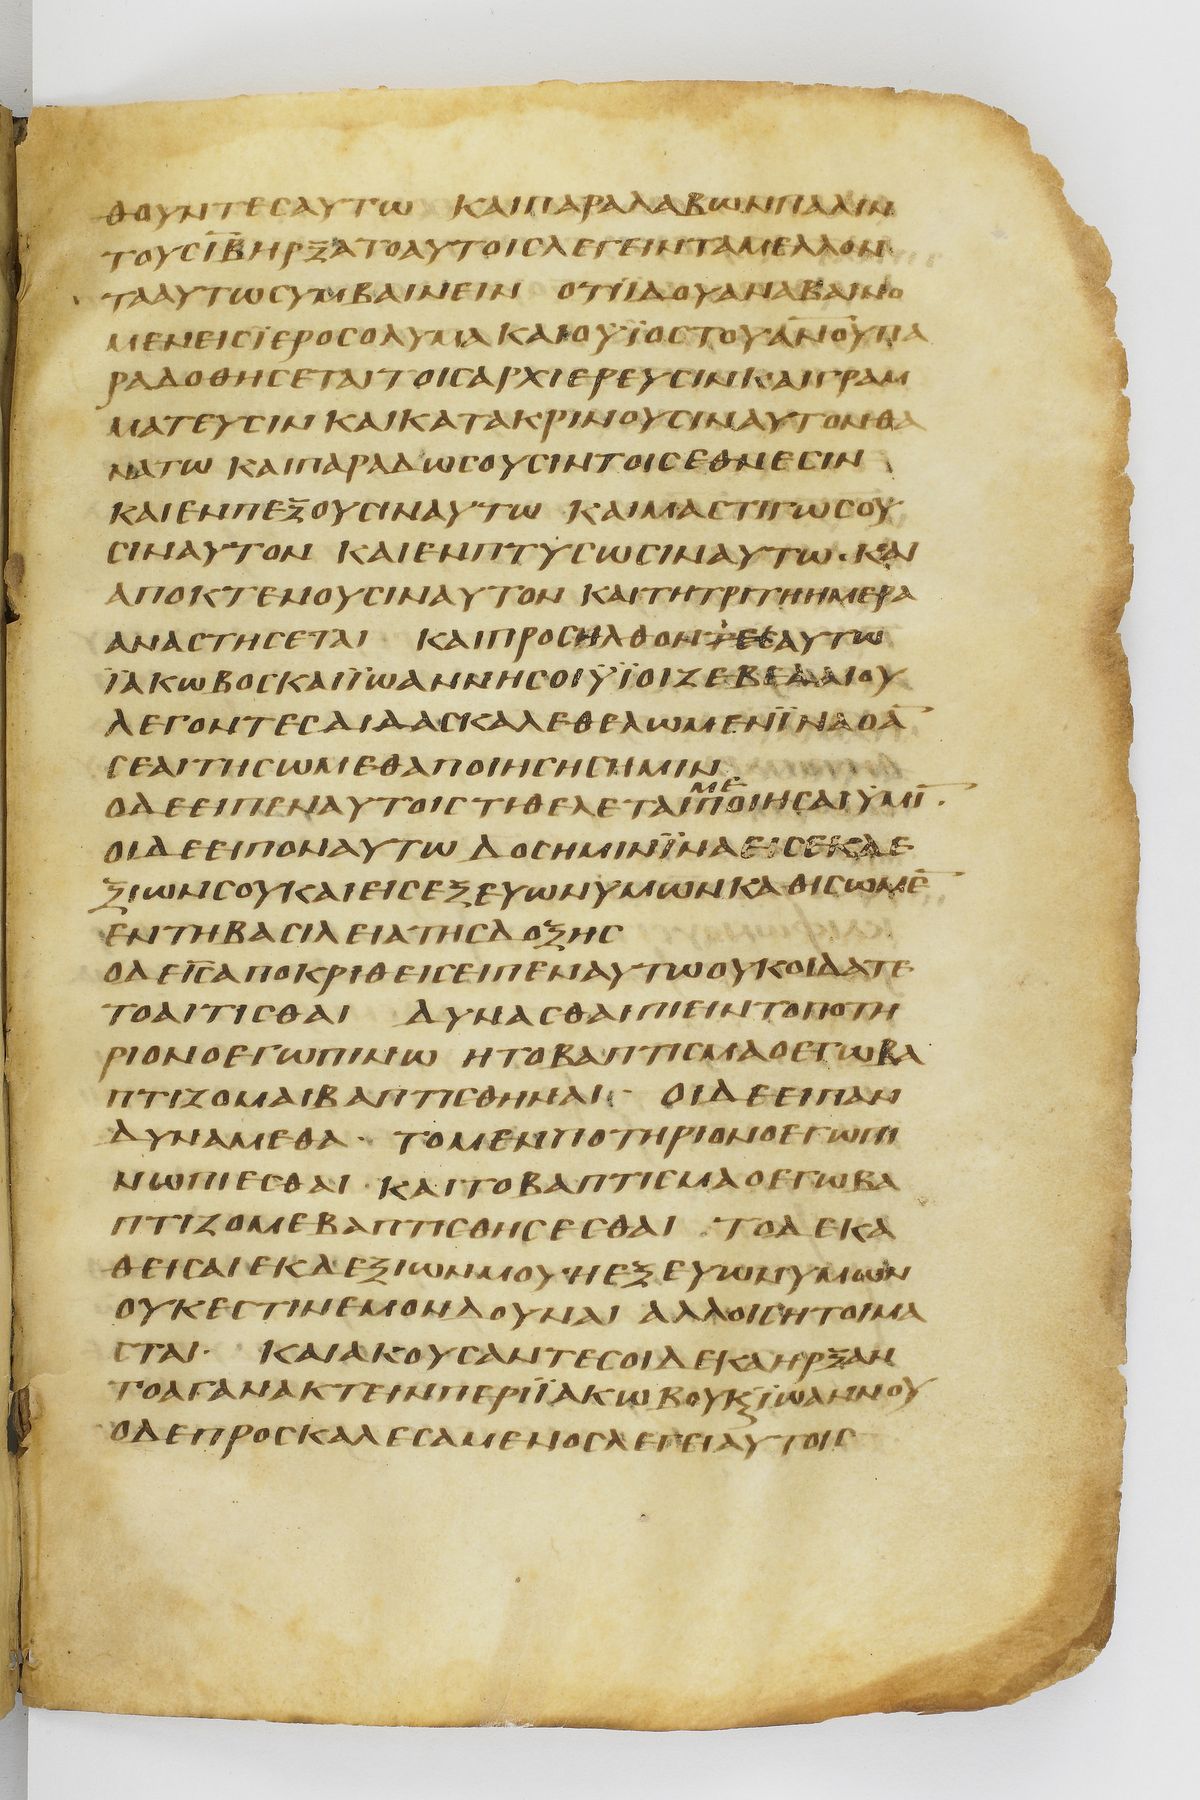 θουντεσαυτω καιπαραλαβωνπαλιν
τουσι̅β̅ηρξατοαυτοισλεγεινταμελλον
τααυτωσυμβαινειν οτιϊδουαναβαινο
μενεισϊεροσολυμα και ουϊοστουα̅ν̅ο̅υ̅πα
ραδοθησεταιτοισαρχιερευσινκαιγραμ
ματευσιν και κατακρινουσιναυτονθα
νατω καιπαραδωσουσιντοισεθνεσιν
καιενπεξουσιναυτω καιμαστιγωσου
σιναυτον και ενπτυσωσιναυτω · και
αποκτενουσιναυτον καιτητριτηημερα
αναστησεται καιπροσηλθοντεσαυτω
ϊακωβοσκαιϊωαννησοιϋϊοιζεβεδαιου
λεγοντεσδιδασκαλεθελωμενϊναοα̅
σεαιτησωμεθαποιησησημιν
οδεειπεναυτοιστιθελεταιμεποιησαιϋμι̅ ·
οιδεειποναυτωδοσημινϊναεισεκδε
ξιωνσουκαιεισεξευωνυμωνκαθισωμε̅
εντηβασιλειατησδοξησ
οδει̅σ̅αποκριθεισειπεναυτωουκοιδατε
τοαιτισθαι δυνασθαιπιειντοποτη
ριονοεγωπινω ητοβαπτισμαοεγωβα
πτιζομαιβαπτισθηναι · οιδεειπαν
δυναμεθα · τομενποτηριονοεγωπι
νωπιεσθαι καιτοβαπτισμαοεγωβα
πτιζομεβαπτισθησεσθαι τοδεκα
θεισαιεκδεξιωνμου · ηεξευωνυμων
ουκεστινεμονδουναι αλλοισητοιμα
σται · καιακουσαντεσοιδεκαηρξαν
τοαγανακτεινπεριϊακωβουκϗϊωαννου
οδεπροσκαλεσαμενοσλεγειαυτοισ